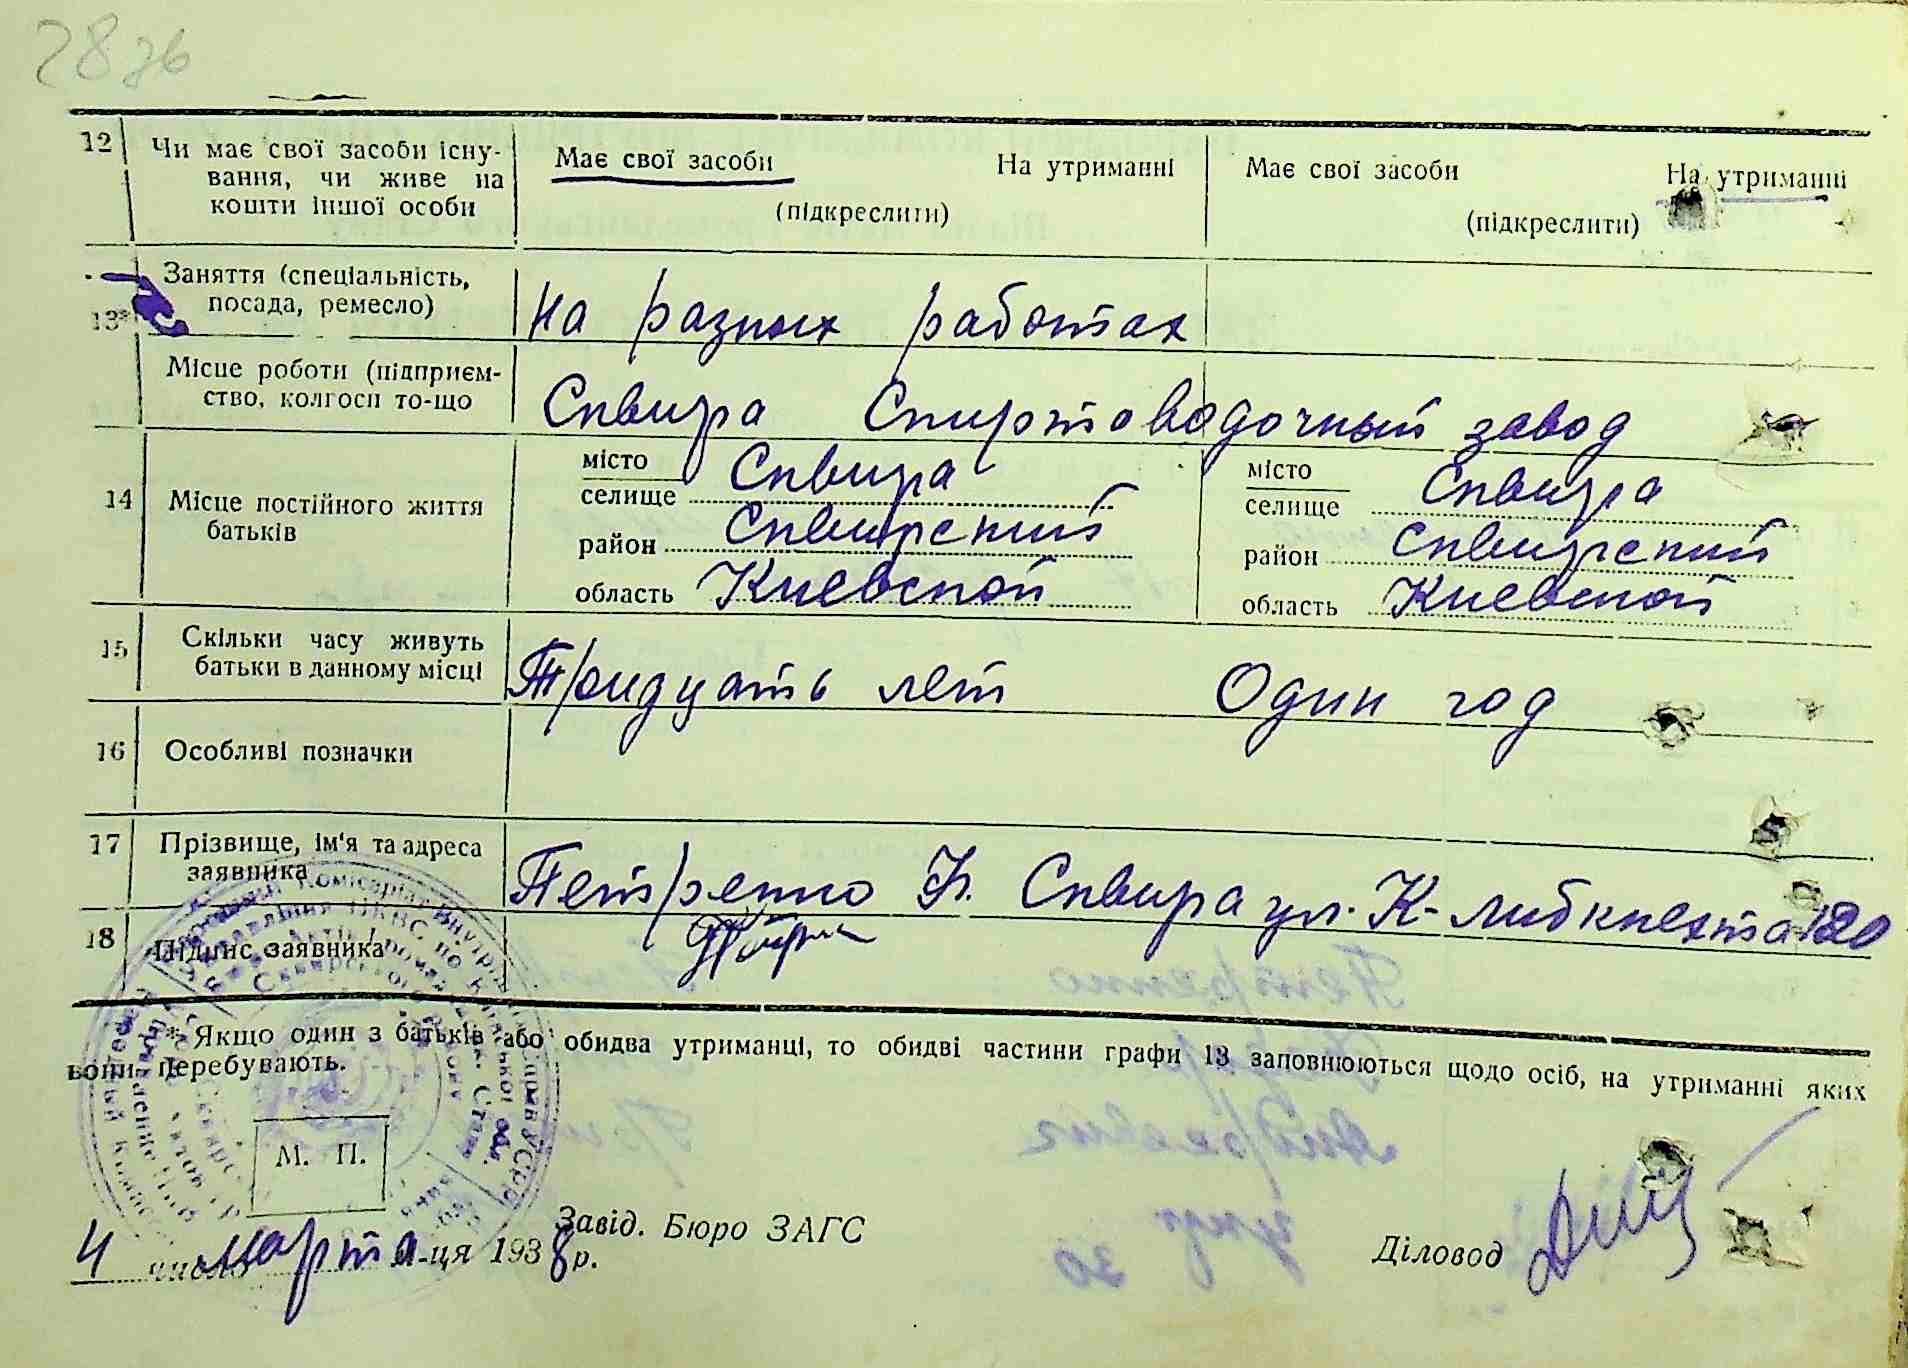 28 зв
12 Чи має свої засоби існу-
вання, чи живе на
кошти іншої особи
Має свої засоби На утриманні
(підкреслити)
Має свої засоби На утриманні
(підкреслити)
13* Заняття (спеціальність,
посада, ремесло)
на разных работах
Місце роботи (підприєм-
ство, колгосп то-що
Сквира Спиртоводочный завод
14 Місце постійного життя
батьків
місто
селище Сквира
район Сквирский
область Киевской
місто
селище Сквира
район Сквирский
область Киевской
15 Скільки часу живуть
батьки в данному місці
Тридцать лет Один год
16 Особливі позначки
17 Прізвище, ім'я та адреса
заявника
Петренко Сквира ул. К-либкнехта 120
18 Підпис заявника
* Якщо один з батьків або обидва утриманці, то обидві частини графи 13 заповнюються щодо осіб, на утриманні яких
вони перебувають.
М. П.
Завід. Бюро ЗАГС
4 число марта м-ця 1938 р.
Діловод